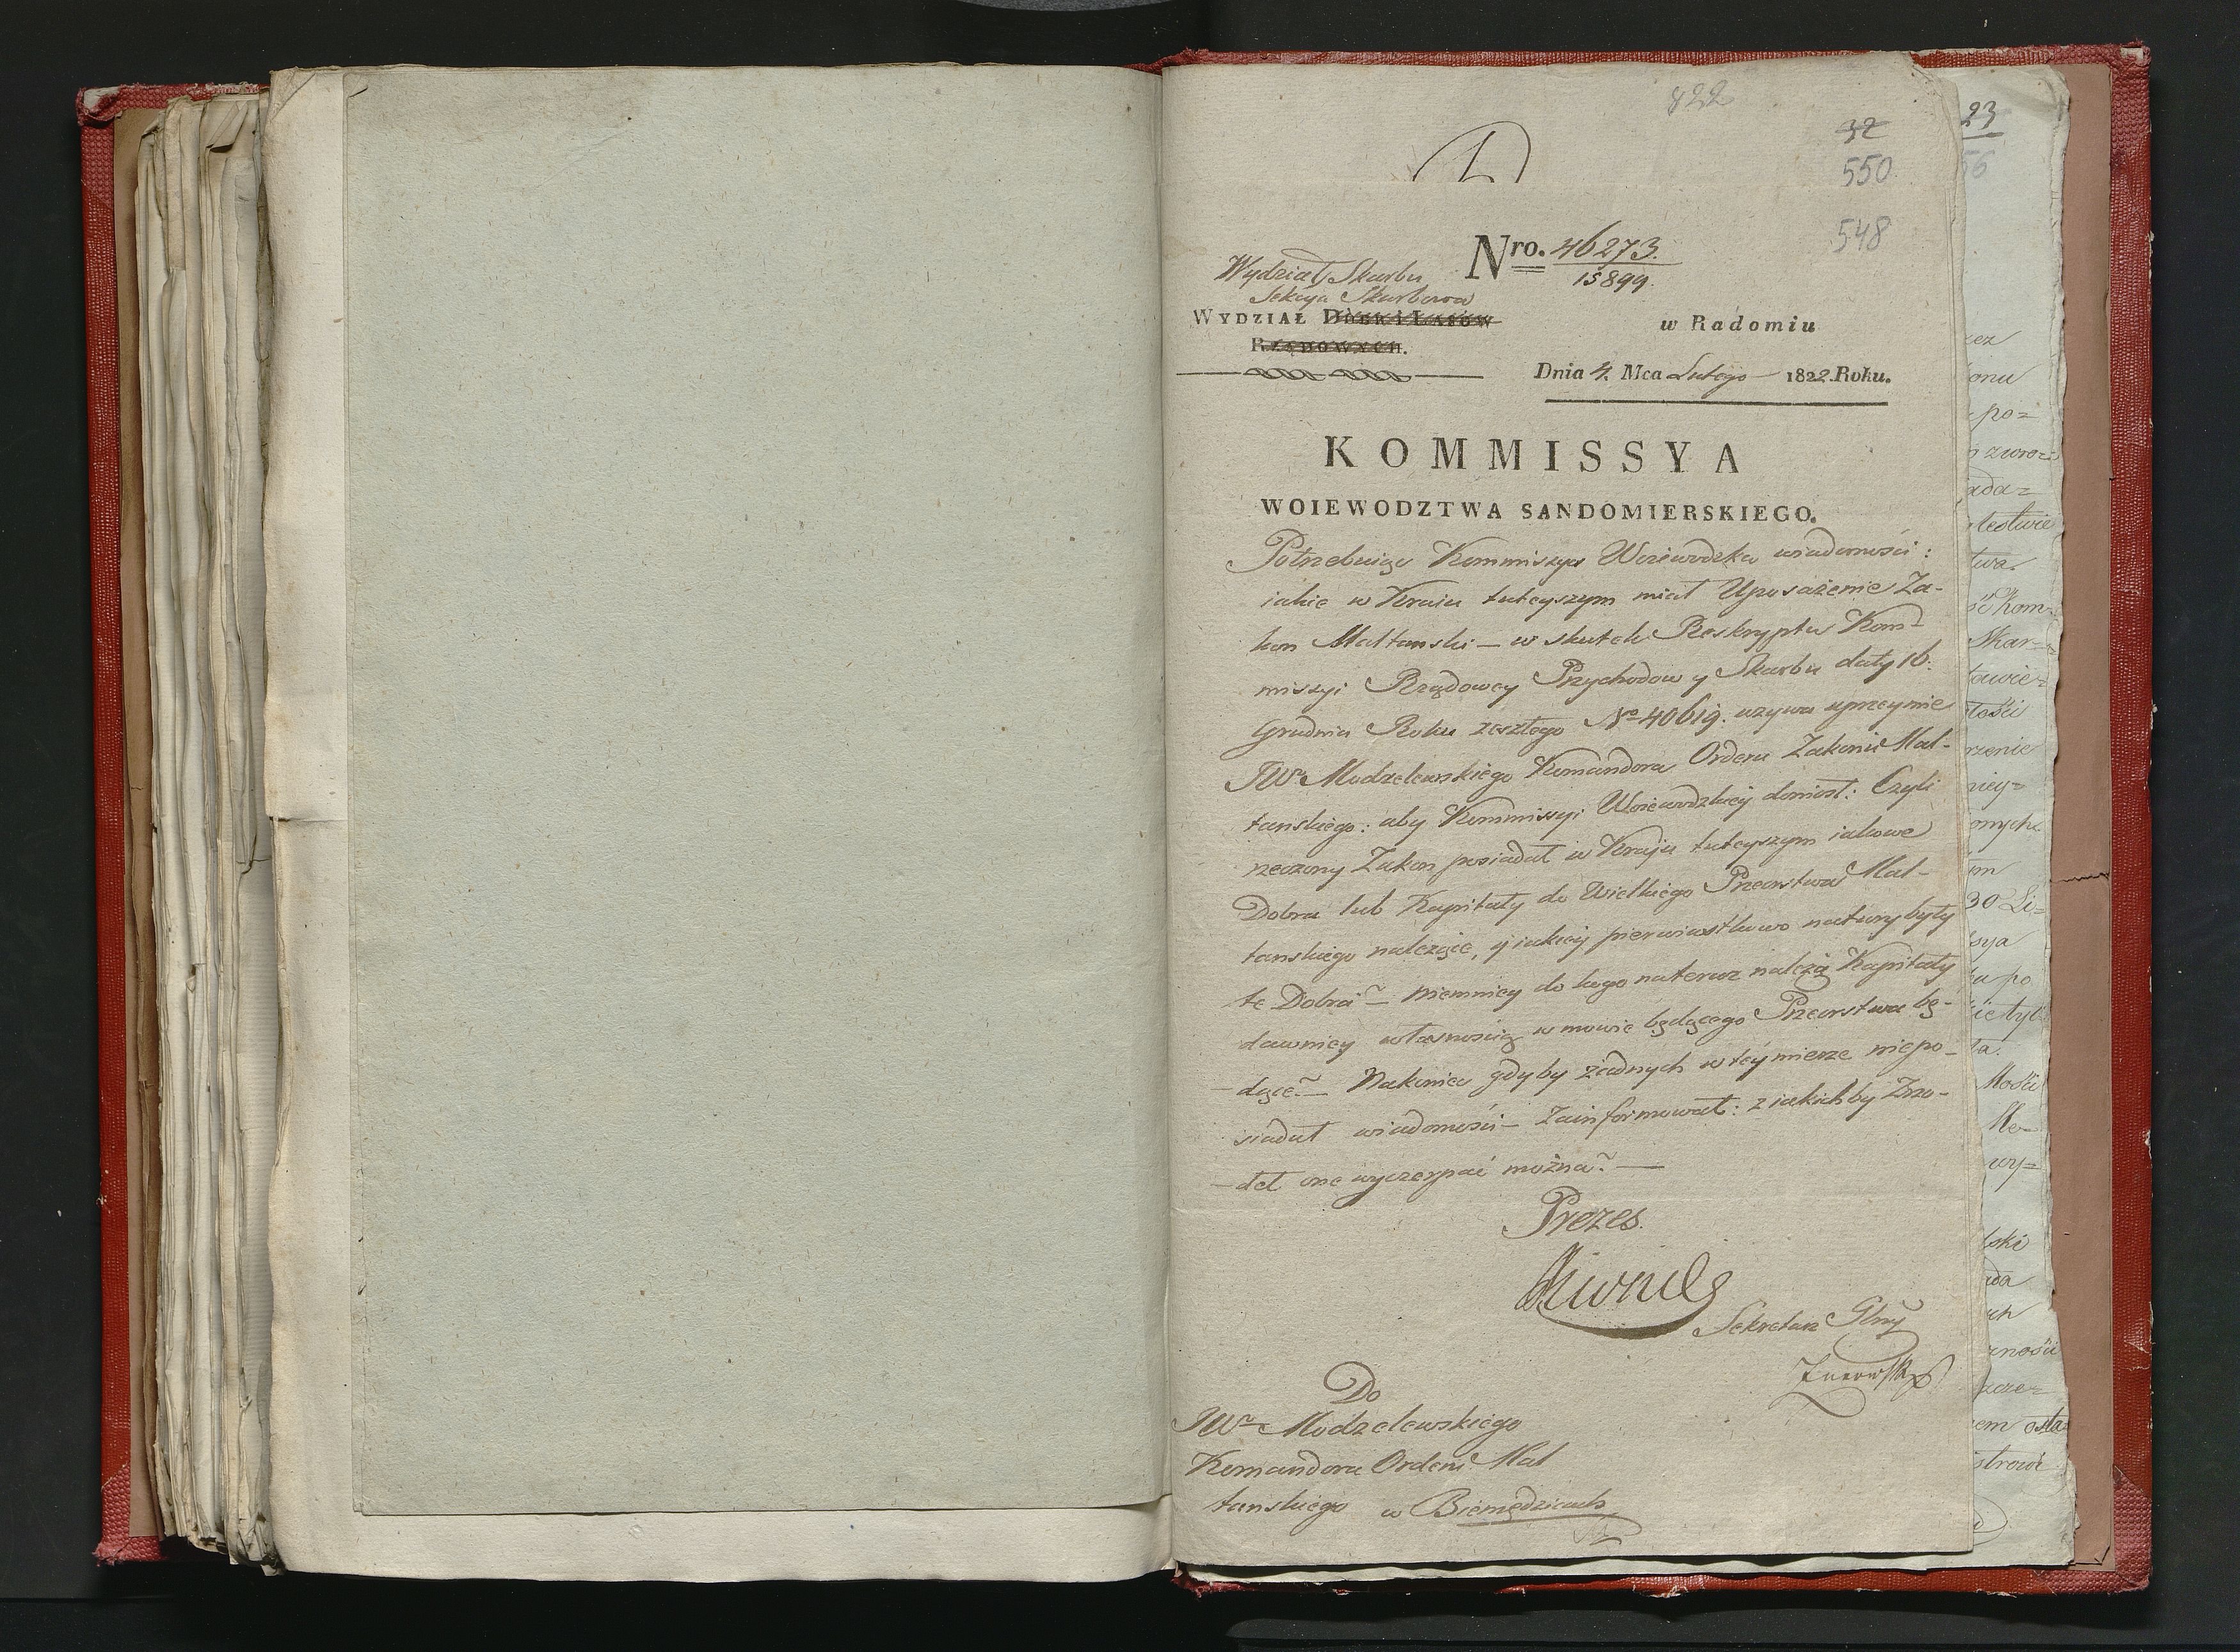 822
32
550
548
Nro. 46273.
15899.
Wydział Skarbu
Sekcya Skarbowa
WYDZIAŁ DÓBR i LASÓW
RZĄDOWYCH.
w Radomiu
Dnia 4. Mca Lutego 1822. Roku.
KOMMISSYA
WOIEWODZTWA SANDOMIERSKIEGO.
Potrzebuiąc Kommissya Woiewodzka wiadomości:
iakie w Kraiu tuteyszym miał Uposażenie Za-
kon Maltanski — w skutek Reskryptu Kom-
missyi Rządowey Przychodow y Skarbu daty 16.
Grudnia Roku zeszłego No 40619. wzywa uprzeymie
JWo Modzelewskiego Komandora Orderu Zakonu Mal-
tanskiego: aby Kommissyi Woiewodzkiey doniosł: Czyli
rzeczony Zakon posiadał w Kraju tuteyszym iakowe
Dobra lub Kapitały do Wielkiego Przeorstwa Mal-
tanskiego należące, y iakiey pierwiastkowo natury były
te Dobra? — Niemniey do kogo nateraz należą Kapitały
dawniey własnością w mowie będącego Przeorstwa bę-
-dące? — Nakoniec gdyby żadnych w tey mierze niepo-
siadał wiadomości — Zainformował: z iakichby Zrzo-
-deł one wyczerpać można? —
Prezes.
Sekretarz Glny
Do
JWo Modzelewskiego
Komandora Orderu Mal
tanskiego w Biemędzicach
23
56